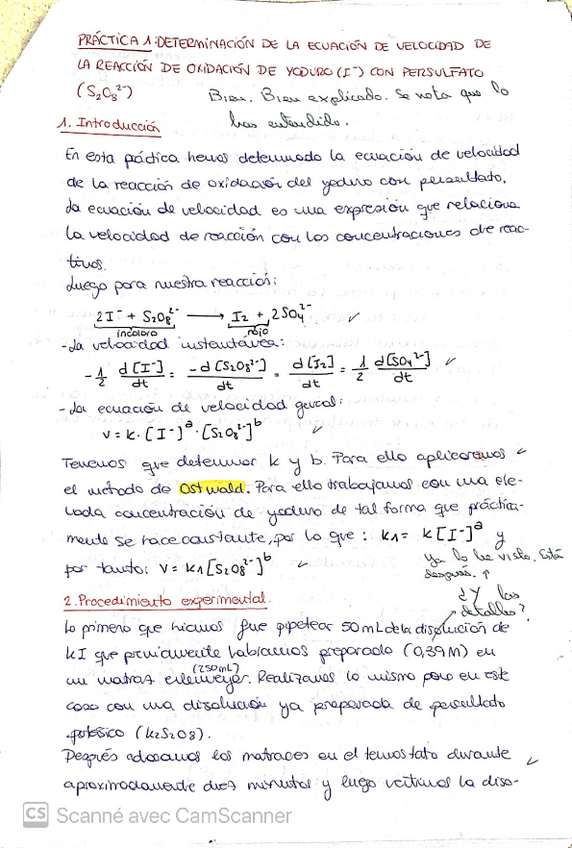 PRÁCTICA 1: DETERMINACIÓN DE LA ECUACIÓN DE VELOCIDAD DE
LA REACCIÓN DE OXIDACIÓN DE YODURO (I⁻) CON PERSULFATO
(S₂O₈²⁻)
Bien. Bien explicado. Se nota que lo
has entendido.
1. Introducción
En esta práctica hemos determinado la ecuación de velocidad
de la reacción de oxidación del yoduro con persulfato.
La ecuación de velocidad es una expresión que relaciona
la velocidad de reacción con las concentraciones de reac-
tivos.
Luego para nuestra reacción:
2I⁻ + S₂O₈²⁻ ⟶ I₂ + 2SO₄²⁻ ✓
incoloro rojo
- La velocidad instantánea:
-1/2 d[I⁻]/dt = -d[S₂O₈²⁻]/dt = d[I₂]/dt = 1/2 d[SO₄²⁻]/dt ✓
- La ecuación de velocidad general:
v = k · [I⁻]ᵃ · [S₂O₈²⁻]ᵇ ✓
Tenemos que determinar k y b. Para ello aplicaremos ✓
el método de Ostwald. Para ello trabajamos con una ele-
vada concentración de yoduro de tal forma que práctica-
mente se hace constante, por lo que: k₁ = k[I⁻]ᵃ y
por tanto: v = k₁[S₂O₈²⁻]ᵇ ✓
Ya lo he visto. Está
después. ↑
¿Y los
detalles?
2. Procedimiento experimental.
Lo primero que hicimos fue pipetear 50 mL de la disolución de
KI que previamente habíamos preparado (0,39M) en
un matraz erlenmeyer. Realizamos lo mismo pero en este
(250mL)
caso con una disolución ya preparada de persulfato
potásico (K₂S₂O₈).
Después colocamos los matraces en el termostato durante ✓
aproximadamente diez minutos y luego vertimos la diso-
CS Scanné avec CamScanner